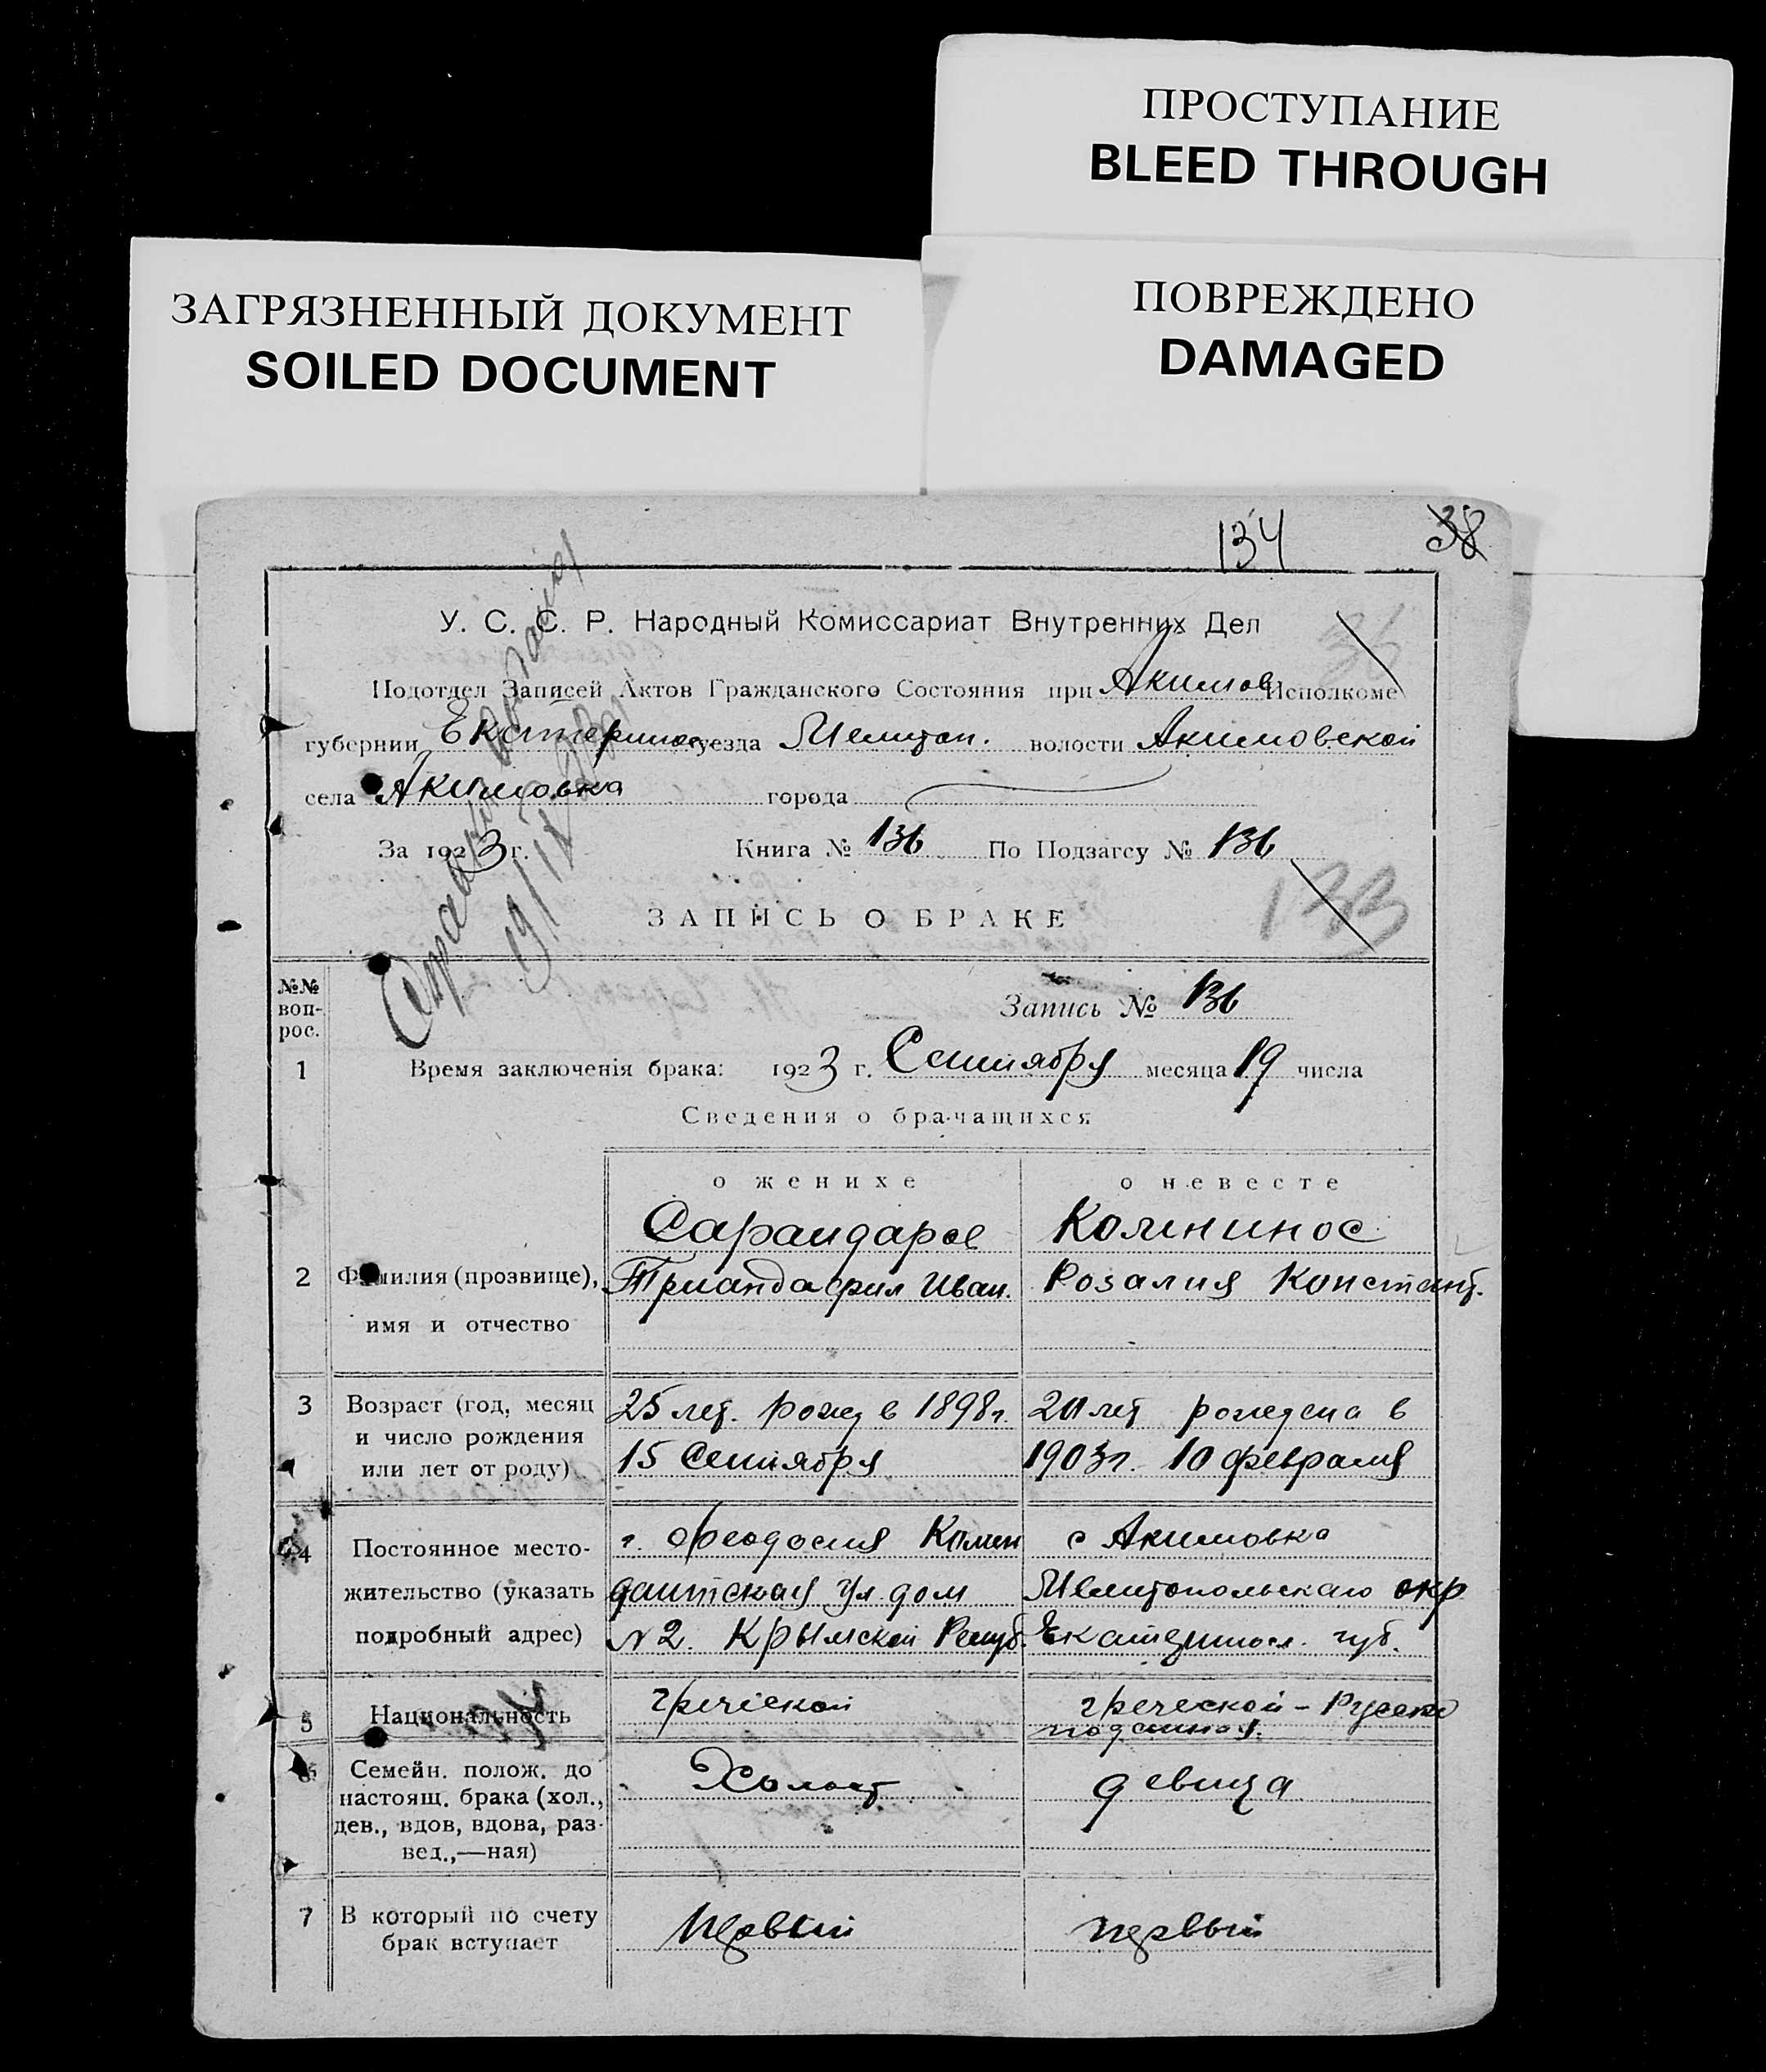 ПРОСТУПАНИЕ
BLEED THROUGH
ЗАГРЯЗНЕННЫЙ ДОКУМЕНТ
SOILED DOCUMENT
ПОВРЕЖДЕНО
DAMAGED
134 38
У. С. С. Р. Народный Комиссариат Внутренних Дел
36
Подотдел Записей Актов Гражданского Состояния при Акимов Исполкоме
губернии Екатеринос. уезда Мелитоп. волости Акимовской
села Акимовка города
За 1923 г. Книга № 136 По Подзагсу № 136
133
ЗАПИСЬ О БРАКЕ
№№ воп-рос.
Запись № 136
1 Время заключенія брака: 1923 г. Сентября месяца 19 числа
Сведения о брачащихся
о женихе о невесте
Сарандарое Комнинос
2 Фамилия (прозвище), Триандафил Иван. Розалия Констант.
имя и отчество
3 Возраст (год, месяц 25 лет. рожд в 1898г. 20 лет рождена в
и число рождения 15 Сентября 1903г. 10 февраля
или лет от роду)
4 Постоянное место- г. Феодосия Комен с Акимовка
жительство (указать дантская ул. дом Мелитопольскаго окр
подробный адрес) №2. Крымской Респуб. Екатериносл. губ.
5 Национальность греческой греческой - Русско
подданная.
6 Семейн. полож. до Холост девица
настоящ. брака (хол.,
дев., вдов, вдова, раз-
вед.,—ная)
7 В который по счету первый первый
брак вступает